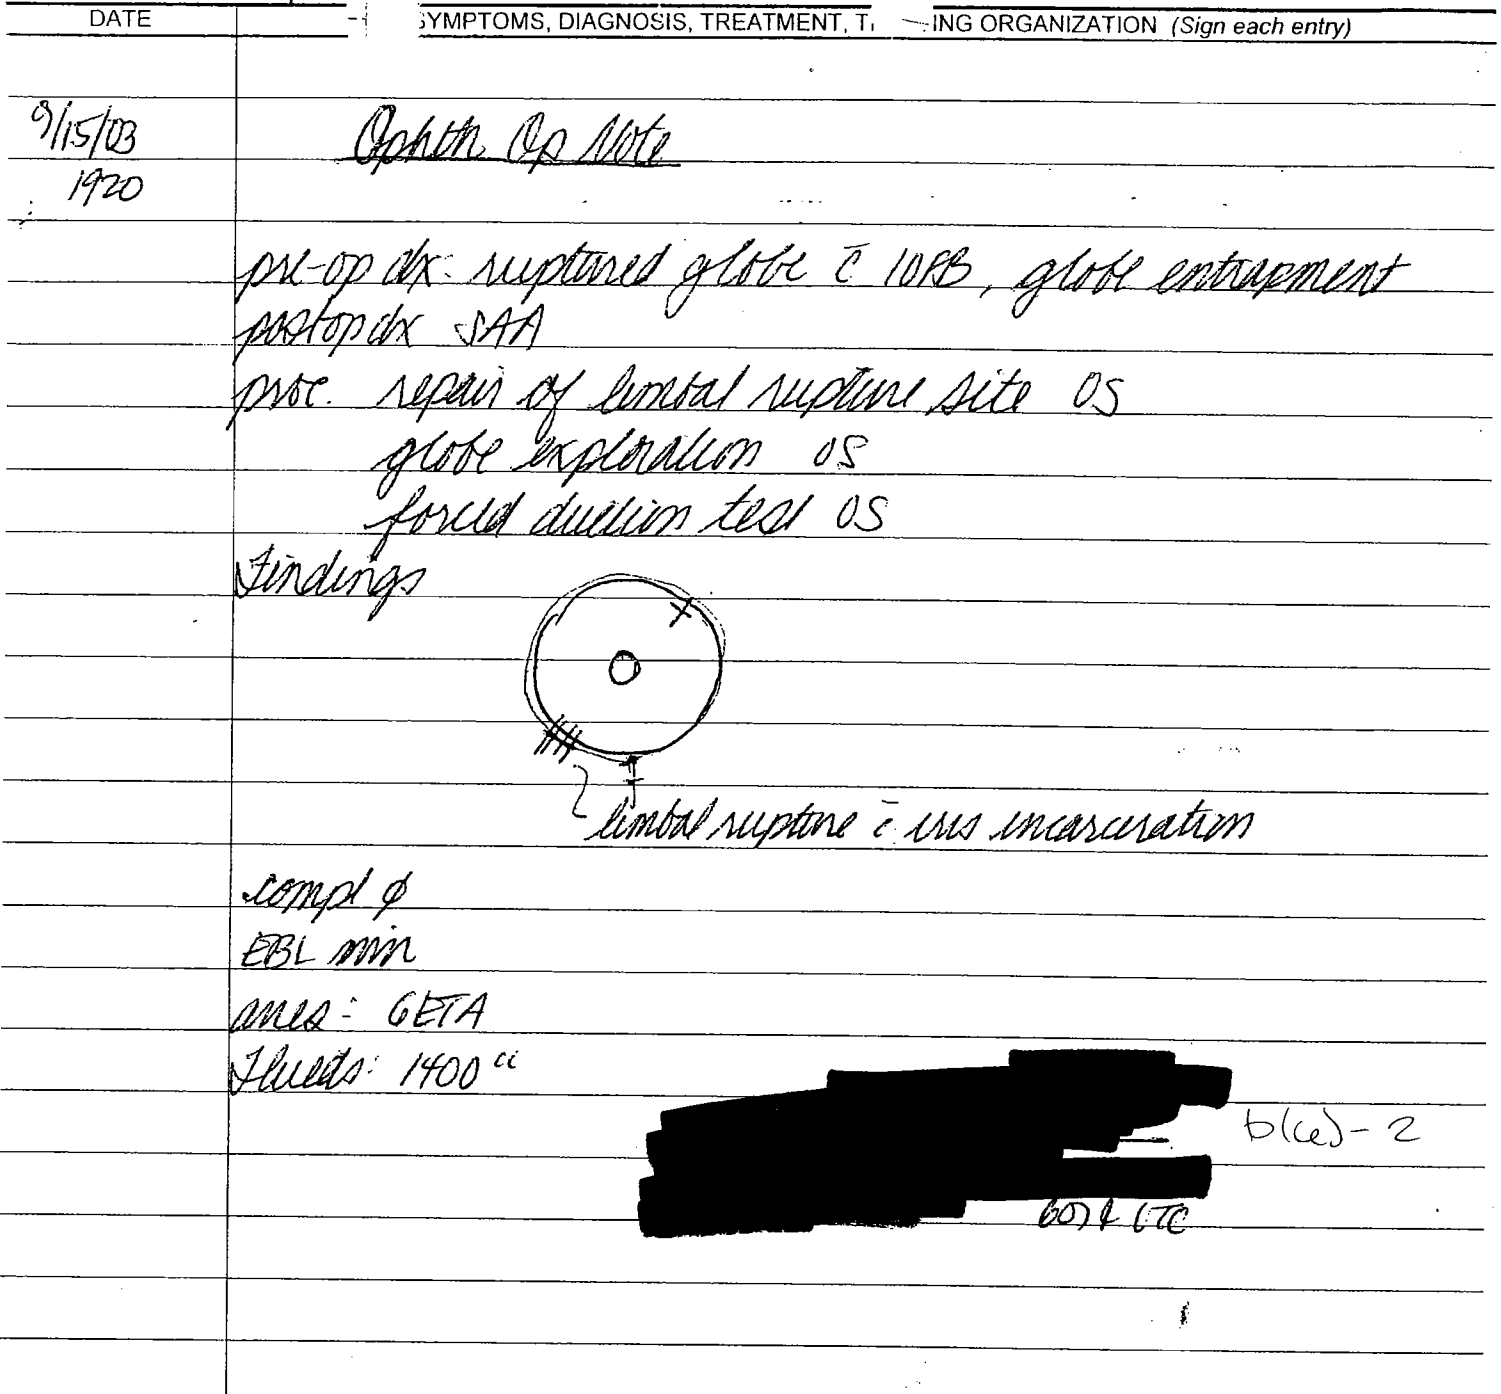 DATE SYMPTOMS, DIAGNOSIS, TREATMENT, T ING ORGANIZATION (Sign each entry)
9/15/03 Ophth Op Note
1920
pre-op dx: ruptured globe c̄ IOFB, globe entrapment
postop dx SAA
proc. repair of limbal rupture site OS
globe exploration OS
forced duction test OS
Findings
limbal rupture c̄ iris incarceration
compl ø
EBL min
anes: GETA
Fluids: 1400 cc
b(6)-2